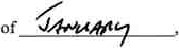 of January,